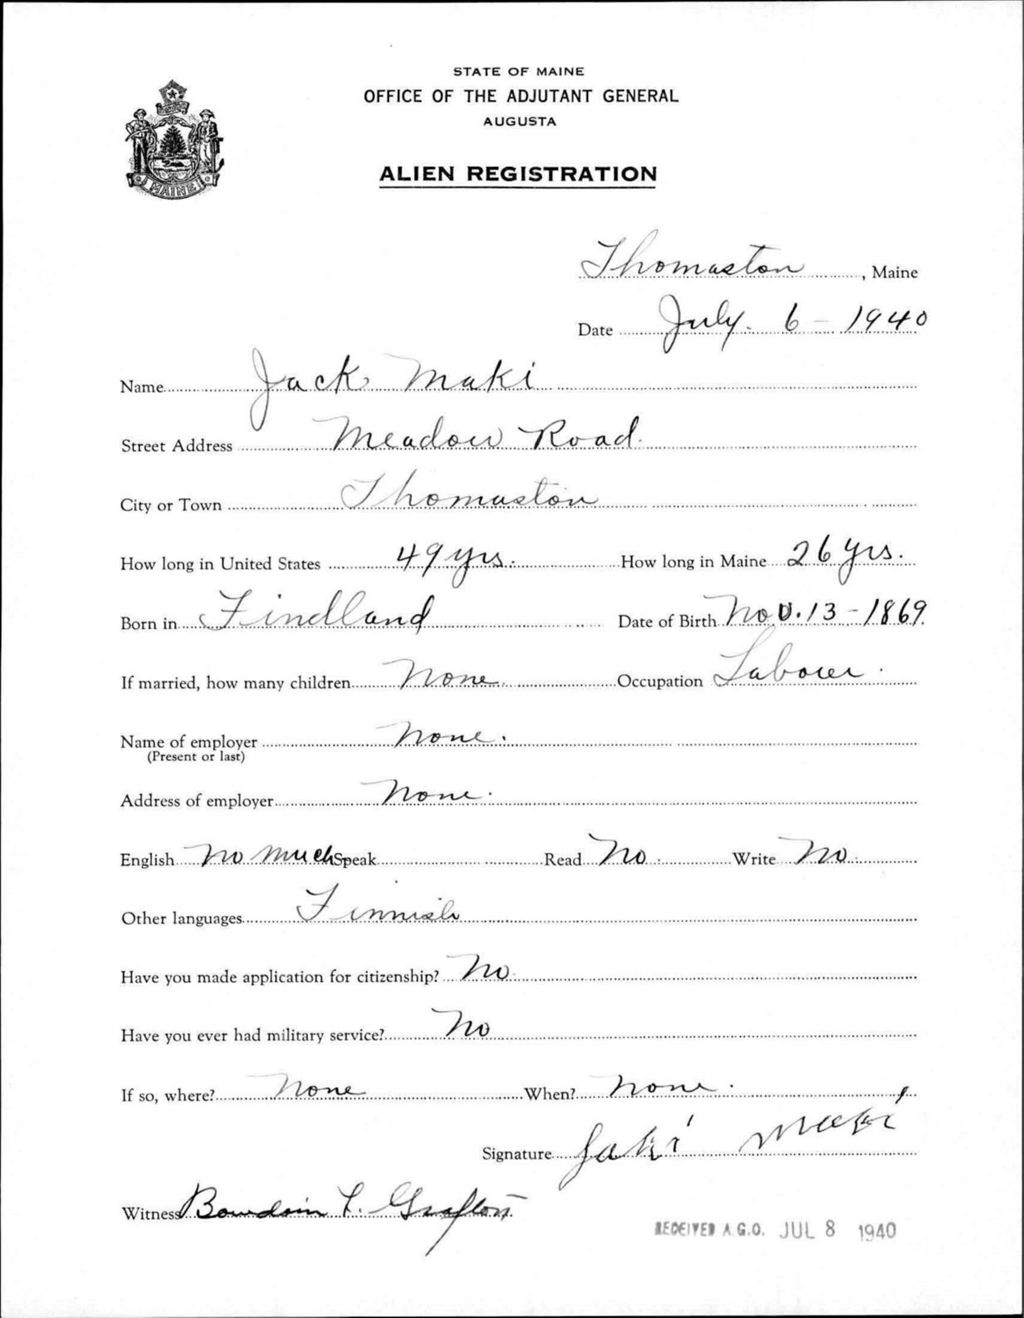 STATE OF MAINE
OFFICE OF THE ADJUTANT GENERAL
AUGUSTA
ALIEN REGISTRATION
MAINE
Thomaston, Maine
Date July 6 - 1940
Name Jack Maki
Street Address Meadow Road
City or Town Thomaston
How long in United States 49 yrs. How long in Maine 26 yrs.
Born in Findland Date of Birth Nov. 13 - 1869
If married, how many children None Occupation Laborer
Name of employer None.
(Present or last)
Address of employer None.
English No much Speak Read No. Write No.
Other languages Finnish
Have you made application for citizenship? No
Have you ever had military service? No
If so, where? None When? None.
Signature Jaki Maki
Witness Bowdoin L. Grafton
RECEIVED A.G.O. JUL 8 1940